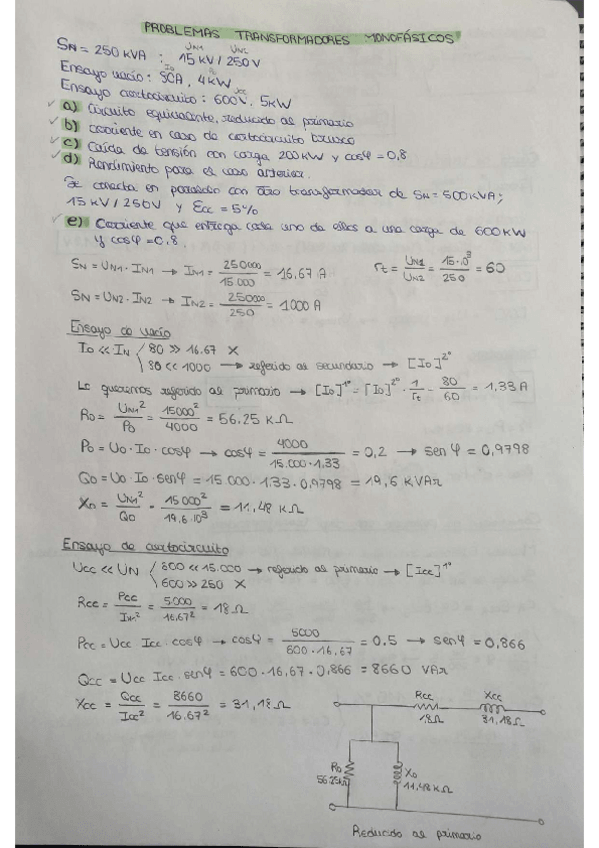 PROBLEMAS TRANSFORMADORES MONOFÁSICOS
UN1 UN2
SN = 250 kVA : 15 kV / 250 V
Io Po
Ensayo vacío: 80A, 4kW
Ucc
Ensayo cortocircuito: 600V, 5kW
a) Circuito equivalente, reducido al primario
b) corriente en caso de cortocircuito brusco
c) Caída de tensión con carga 200kW y cosφ = 0,8
d) Rendimiento para el caso anterior.
Se conecta en paralelo con otro transformador de SN = 500KVA;
15 kV / 250V y Ecc = 5%
e) Corriente que entrega cada uno de ellos a una carga de 600KW
y cosφ = 0,8.
SN = UN1 · IN1 → IN1 = 250000 / 15.000 = 16,67 A rt = UN1 / UN2 = 15·10³ / 250 = 60
SN = UN2 · IN2 → IN2 = 250000 / 250 = 1000 A
Ensayo de vacío
Io << IN 80 >> 16.67 X
80 << 1000 → referido al secundario → [Io]2º
Lo queremos referido al primario → [Io]1º = [Io]2º · 1/rt = 80/60 = 1,33 A
Ro = UN1² / Po = 15000² / 4000 = 56.25 kΩ
Po = Uo · Io · cosφ → cosφ = 4000 / 15.000 · 1,33 = 0,2 → senφ = 0,9798
Qo = Uo · Io · senφ = 15.000 · 1.33 · 0,9798 = 19,6 KVAr
Xo = UN1² / Qo = 15000² / 19,6·10³ = 11,48 kΩ
Ensayo de cortocircuito
Ucc << UN 600 << 15.000 → referido al primario → [Icc]1º
600 >> 250 X
Rcc = Pcc / IN1² = 5000 / 16,67² = 18 Ω
Pcc = Ucc Icc · cosφ → cosφ = 5000 / 600 · 16,67 = 0.5 → senφ = 0,866
Qcc = Ucc Icc · senφ = 600 · 16.67 · 0,866 = 8660 VAr
Xcc = Qcc / Icc² = 8660 / 16.67² = 31,18 Ω
Rcc Xcc
18Ω 31,18Ω
Ro Xo
56.25kΩ 11,48 KΩ
Reducido al primario